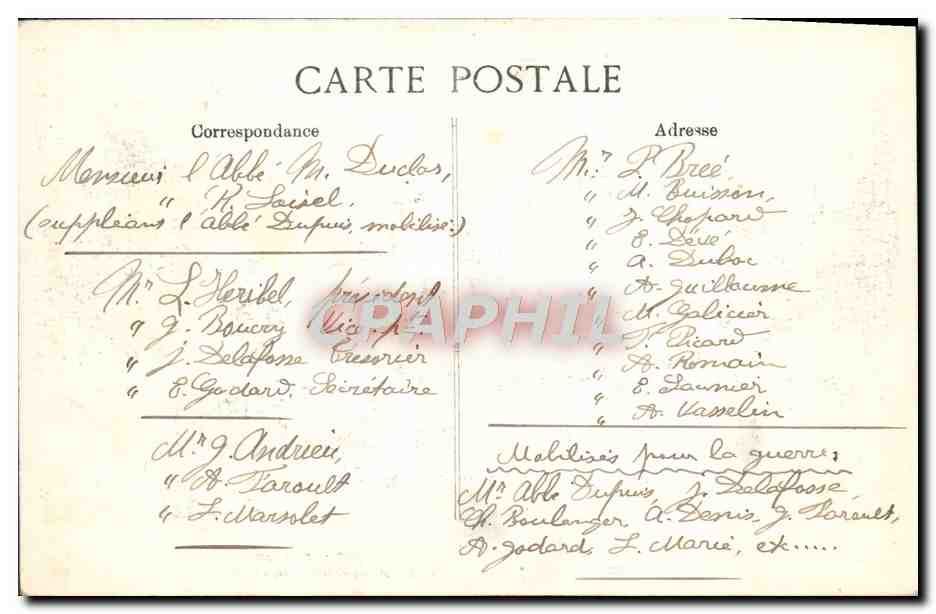 CARTE POSTALE
Correspondance
Monsieur l'Abbé M. Duclos,
" R. Loisel.
(suppléant l'abbé Dupuis, mobilisé.)
Mr L. Heribel, président
" G. Boucry Vice-pt
" J. Delafosse Trésorier
" E. Godard. Secrétaire
Mr G. Andrieu,
" A. Faroult
" L. Marsolet
Adresse
Mr P. Breé.
" M. Buisson,
" J. Chopard
" E. Dévé
" A. Duboc
" A. Guillaume
" M. Galicier
" F. Picard
" A. Romain
" E. Saunier
" A. Vasselin
Mobilisés pour la guerre:
Mr Abbé Dupuis, J. Delafosse
Ch. Boulanger, A. Denis, J. Faroult,
A. Godard, L. Marie, etc.....
CPAPHIL